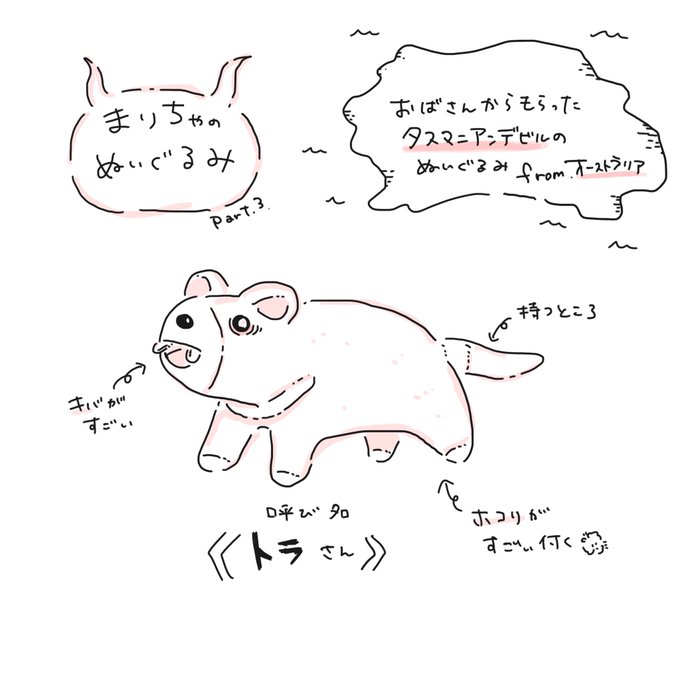 まりちゃの
ぬいぐるみ
part.3.
おばさんからもらった
タスマニアンデビルの
ぬいぐるみ from.オーストラリア
持つところ
キバが
すごい
呼び名
《トラさん》
ホコリが
すごい付く